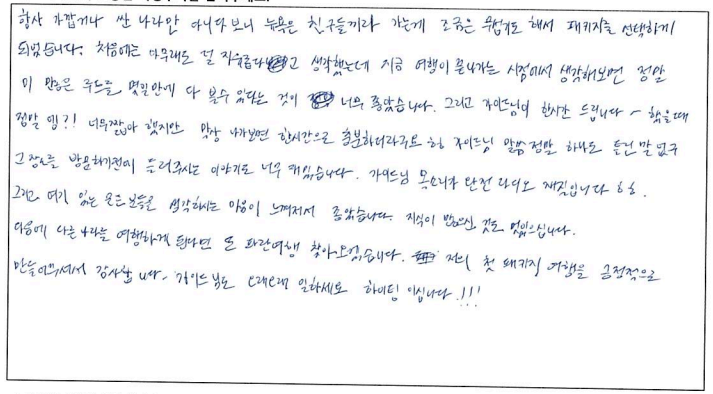 항상 가깝거나 싼 나라만 아니다보니 뉴욕은 친구들끼리 가는게 조금은 무섭기도 해서 패키지를 선택하게
되었습니다. 처음에는 아무래도 덜 자유롭다고 생각했는데 지금 여행이 끝나가는 시점에서 생각해보면 정말
이 많은 루트를 몇일안에 다 볼수 있다는 것이 너무 좋았습니다. 그리고 가이드님이 한시간 드립니다~ 했을때
정말 엥?! 너무짧아 했지만 막상 나가보면 한시간으로 충분하더라구요 ㅎㅎ 가이드님 말씀 정말 하나도 틀린말 없구
그 장소를 방문하기전에 들려주시는 이야기도 너무 재밌습니다. 가이드님 목소리가 완전 라디오 재질입니다 ㅎㅎ.
그리고 여기 있는 모든 분들을 생각하시는 마음이 느껴져서 좋았습니다. 지식이 많으신 것도 멋있으십니다.
다음에 다른나라를 여행하게 된다면 또 파란여행 찾아오겠습니다. 저의 첫 패키지 여행을 긍정적으로
만들어주셔서 감사합니다. 가이드님도 오래오래 일하세요 화이팅 이십니다.!!!